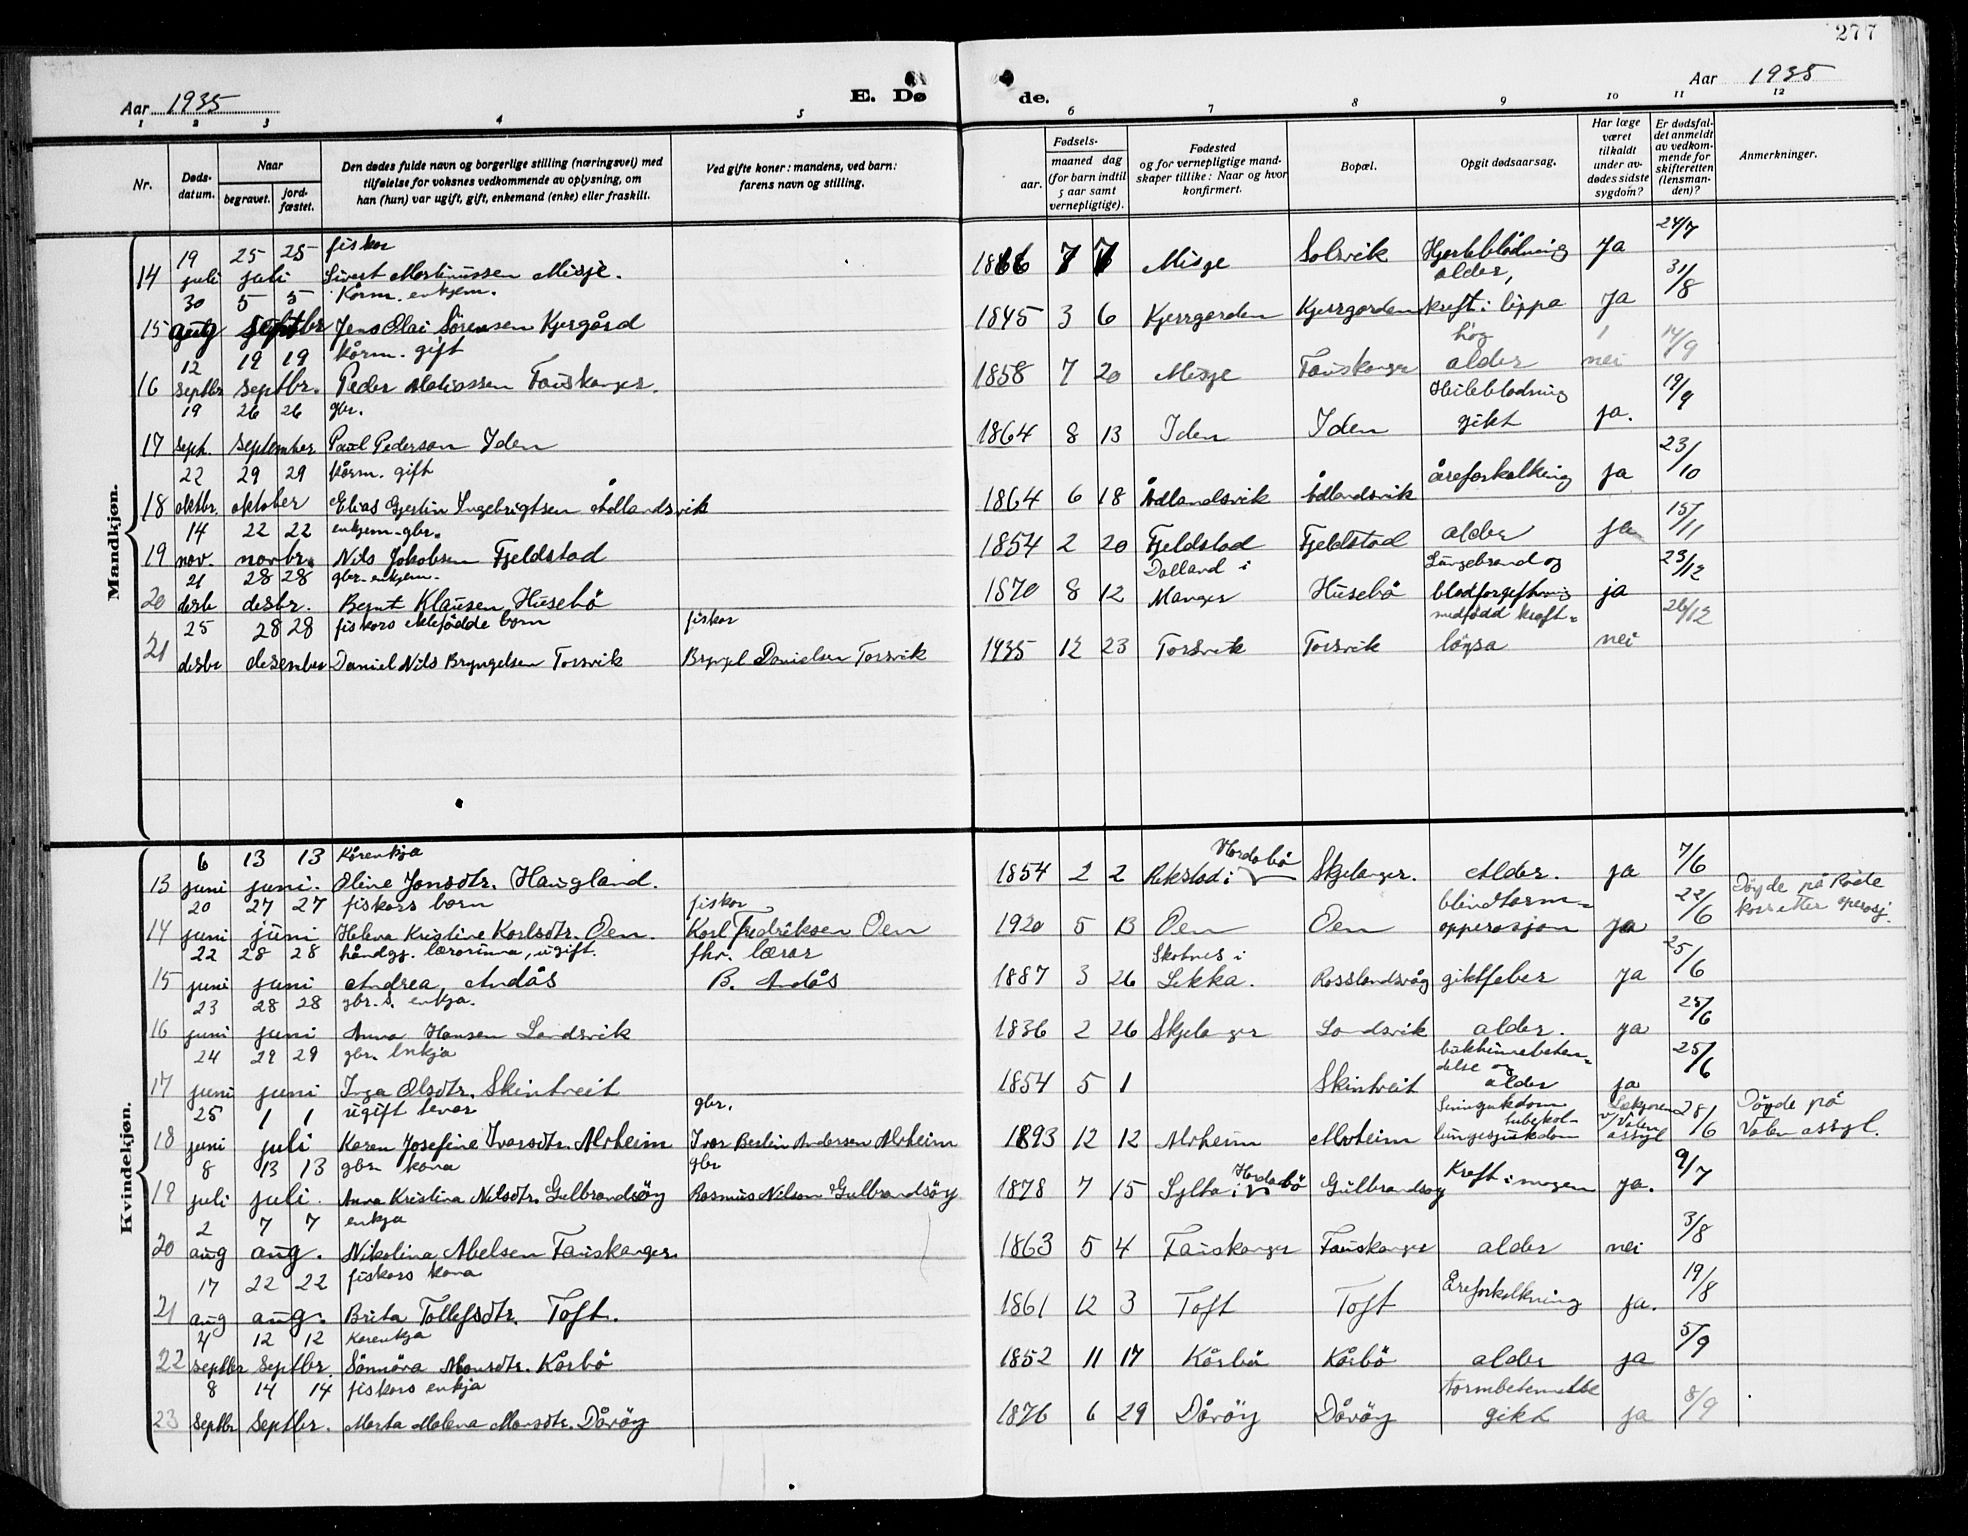 277
Aar 1935
E. Dø
de.
Aar 1935
1 2 3 4 5 6 7 8 9 10 11 12
Nr.
Døds-datum.
Naar
begravet.
jord-fæstet.
Den dødes fulde navn og borgerlige stilling (næringsvei) med
tilføielse for voksnes vedkommende av oplysning, om
han (hun) var ugift, gift, enkemand (enke) eller fraskilt.
Ved gifte koner: mandens, ved barn:
farens navn og stilling.
Fødsels-
aar.
maaned dag
(for barn indtil
5 aar samt
vernepligtige).
Fødested
og for vernepligtige mand-
skaper tillike: Naar og hvor
konfirmert.
Bopæl.
Opgit dødsaarsag.
Har læge
været
tilkaldt
under av-
dødes sidste
sygdom?
Er dødsfal-
det anmeldt
av vedkom-
mende for
skifteretten
(lensman-
den)?
Anmerkninger.
Mandkjøn.
14 19 juli 25 25 juli fiskar Sivert Martinussen Misje. 1866 7 7 Misje Solsvik Hjerteblødning Ja 24/7
15 30 aug 5 5 septbr Kårm. enkjem. Jens Elai Sörensen Kjergård 1845 3 6 Kjerrgarden Kjerrgarden alder, kreft i lippa Ja 31/8
16 12 septbr 19 19 septbr. kårm. gift Peder Matiassen Fauskanger. 1858 7 20 Misje Fauskanger høg alder nei 14/9
17 19 sept. 26 26 september gbr. Paul Pederson Iden 1864 8 13 Iden Iden Heileblødning gikt ja. 19/9
18 22 oktbr. 29 29 oktober kårm. gift Elias Gjertin Ingebrigtsen Ådlandsvik 1864 6 18 Ådlandsvik Ådlandsvik åreforkalking ja 23/10
19 14 nov. 22 22 novbr. enkjem. gbr. Nils Jakobsen Fjeldstad 1854 2 20 Fjeldstad Fjeldstad alder ja 15/11
20 21 desb 28 28 desbr. gbr. enkjem. Bernt Klausen Husebö 1870 8 12 Dalland i Manger Husebö Lungebrand og blodforgiftning ja 23/12
21 25 desbr 28 28 desember fiskars ektefødde born Daniel Nils Bryngelsen Torsvik fiskar Bryngel Danielsen Torsvik 1935 12 23 Torsvik Torsvik medfødd kraft-löysa nei 26/12
Kvindekjøn.
13 6 juni 13 13 juni. Kårenkja Oline Jonsdtr. Haugland. 1854 2 2 Rikstad i Hordabö Skjelanger. Alder. ja 7/6
14 20 juni 27 27 juni fiskars born Helena Kristine Karlsdtr. Oen. fiskar Karl Fredriksen Oen 1920 5 13 Oen Oen blindtarm-opperasjon ja 22/6 Döyde på Röde kors etter operasj.
15 22 juni 28 28 juni håndgj. lærarinna, ugift. Andrea Andås fhv. lærar B. Andås 1887 3 26 Skotnes i Lekka. Rosslandsvåg giktfeber ja 25/6
16 23 juni 28 28 juni gbr.s. enkja. Anna Hansen Landsvik 1836 2 26 Skjelanger Landsvik alder. ja 25/6
17 24 juni 29 29 juni gbr. enkja Inga Olsdtr. Skintveit 1854 5 1 Skintveit bukhinnebeten-delse og alder ja 25/6
18 25 juni 1 1 juli ugift tever Karen Josefine Ivarsdtr. Alvheim gbr. Ivar Berlin Andersen Alvheim 1893 12 12 Alvheim Alvheim Sinnsjukdom tubekol-lungesjukdom Lækjaren v/ Valen assyl 28/6 Döyde på Valen assyl.
19 8 juli 13 13 juli. gbr. kona Anna Kristina Nilsdtr. Gulbrandsöy gbr Rasmus Nilsen Gulbrandsöy 1878 7 15 Sylta i Hordabö Gulbrandsöy Kreft i magen ja. 9/7
20 2 aug 7 7 aug. enkja Nikolina Abelsen Fauskanger. 1863 5 4 Fauskanger Fauskanger alder nei 3/8
21 17 aug 22 22 aug. fiskars kona Brita Tollefsdtr. Toft. 1861 12 3 Toft Toft Åreforkalkning ja. 19/8
22 4 septbr 12 12 septbr. Kårenkja Sönnöva Monsdtr. Kårbö 1852 11 17 Kårbö Kårbö alder ja 5/9
23 8 septbr 14 14 septbr. fiskars enkja Marta Malena Monsdtr. Dåvöy 1876 6 29 Dåvöy Dåvöy gikt ja 8/9